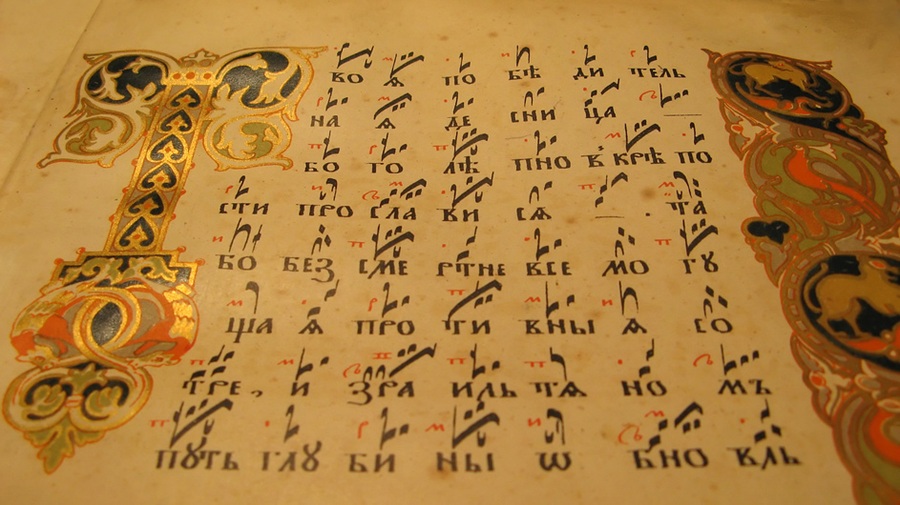 Т
ВО Ѧ ПО БѢ ДИ ТЕЛЬ
НА Ѧ ДЕ СНИ ЦА
БО ГО ЛѢ ПНО В КРѢ ПО
СТИ ПРО СЛА ВИ СѦ . ТА
БО БЕЗ СМЕ РТНЕ ВСЕ МО ГУ
ЩА Ѧ ПРО ТИ ВНЫ Ѧ СО
ТРЕ, И ЗРА ИЛЬ ТѦ НО МЪ
ПУТЬ ГЛУ БИ НЫ Ѡ БНО ВЛЬ